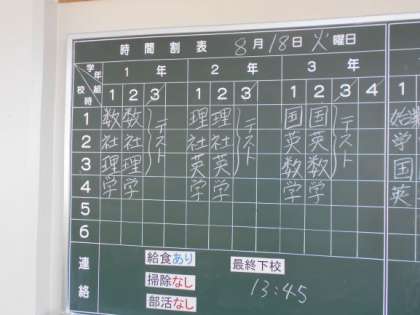 時間割表 8月18日火曜日
学年 1年 2年 3年
校時 組 1 2 3 1 2 3 1 2 3 4
1 数 数 テスト 理 理 テスト 国 国 テスト
2 社 社 社 社 英 英
3 理 理 英 英 数 数
4 学 学 学 学 学 学
5
6
学
国
英
連絡
給食あり 最終下校
掃除なし 13:45
部活なし